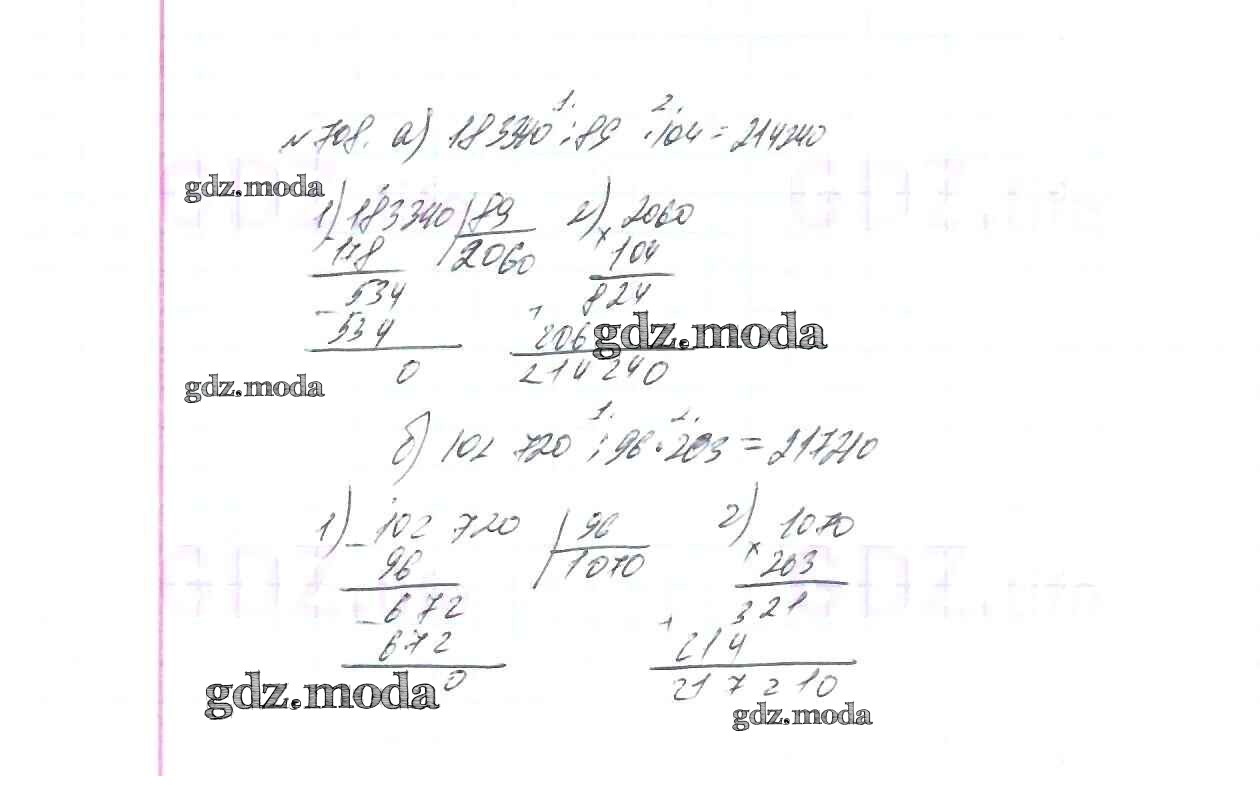 №708. а) 183340 : 89 · 104 = 214240
1. 2.
gdz.moda
1) 183340 | 89
- 178 | 2060
534
- 534
0
2) 2060
× 104
824
+ 206
214240
gdz.moda
gdz.moda
б) 102 720 : 96 · 203 = 217210
1. 2.
1) - 102 720 | 96
96 | 1070
- 672
672
0
2) 1070
× 203
321
+ 214
217 210
gdz.moda
gdz.moda